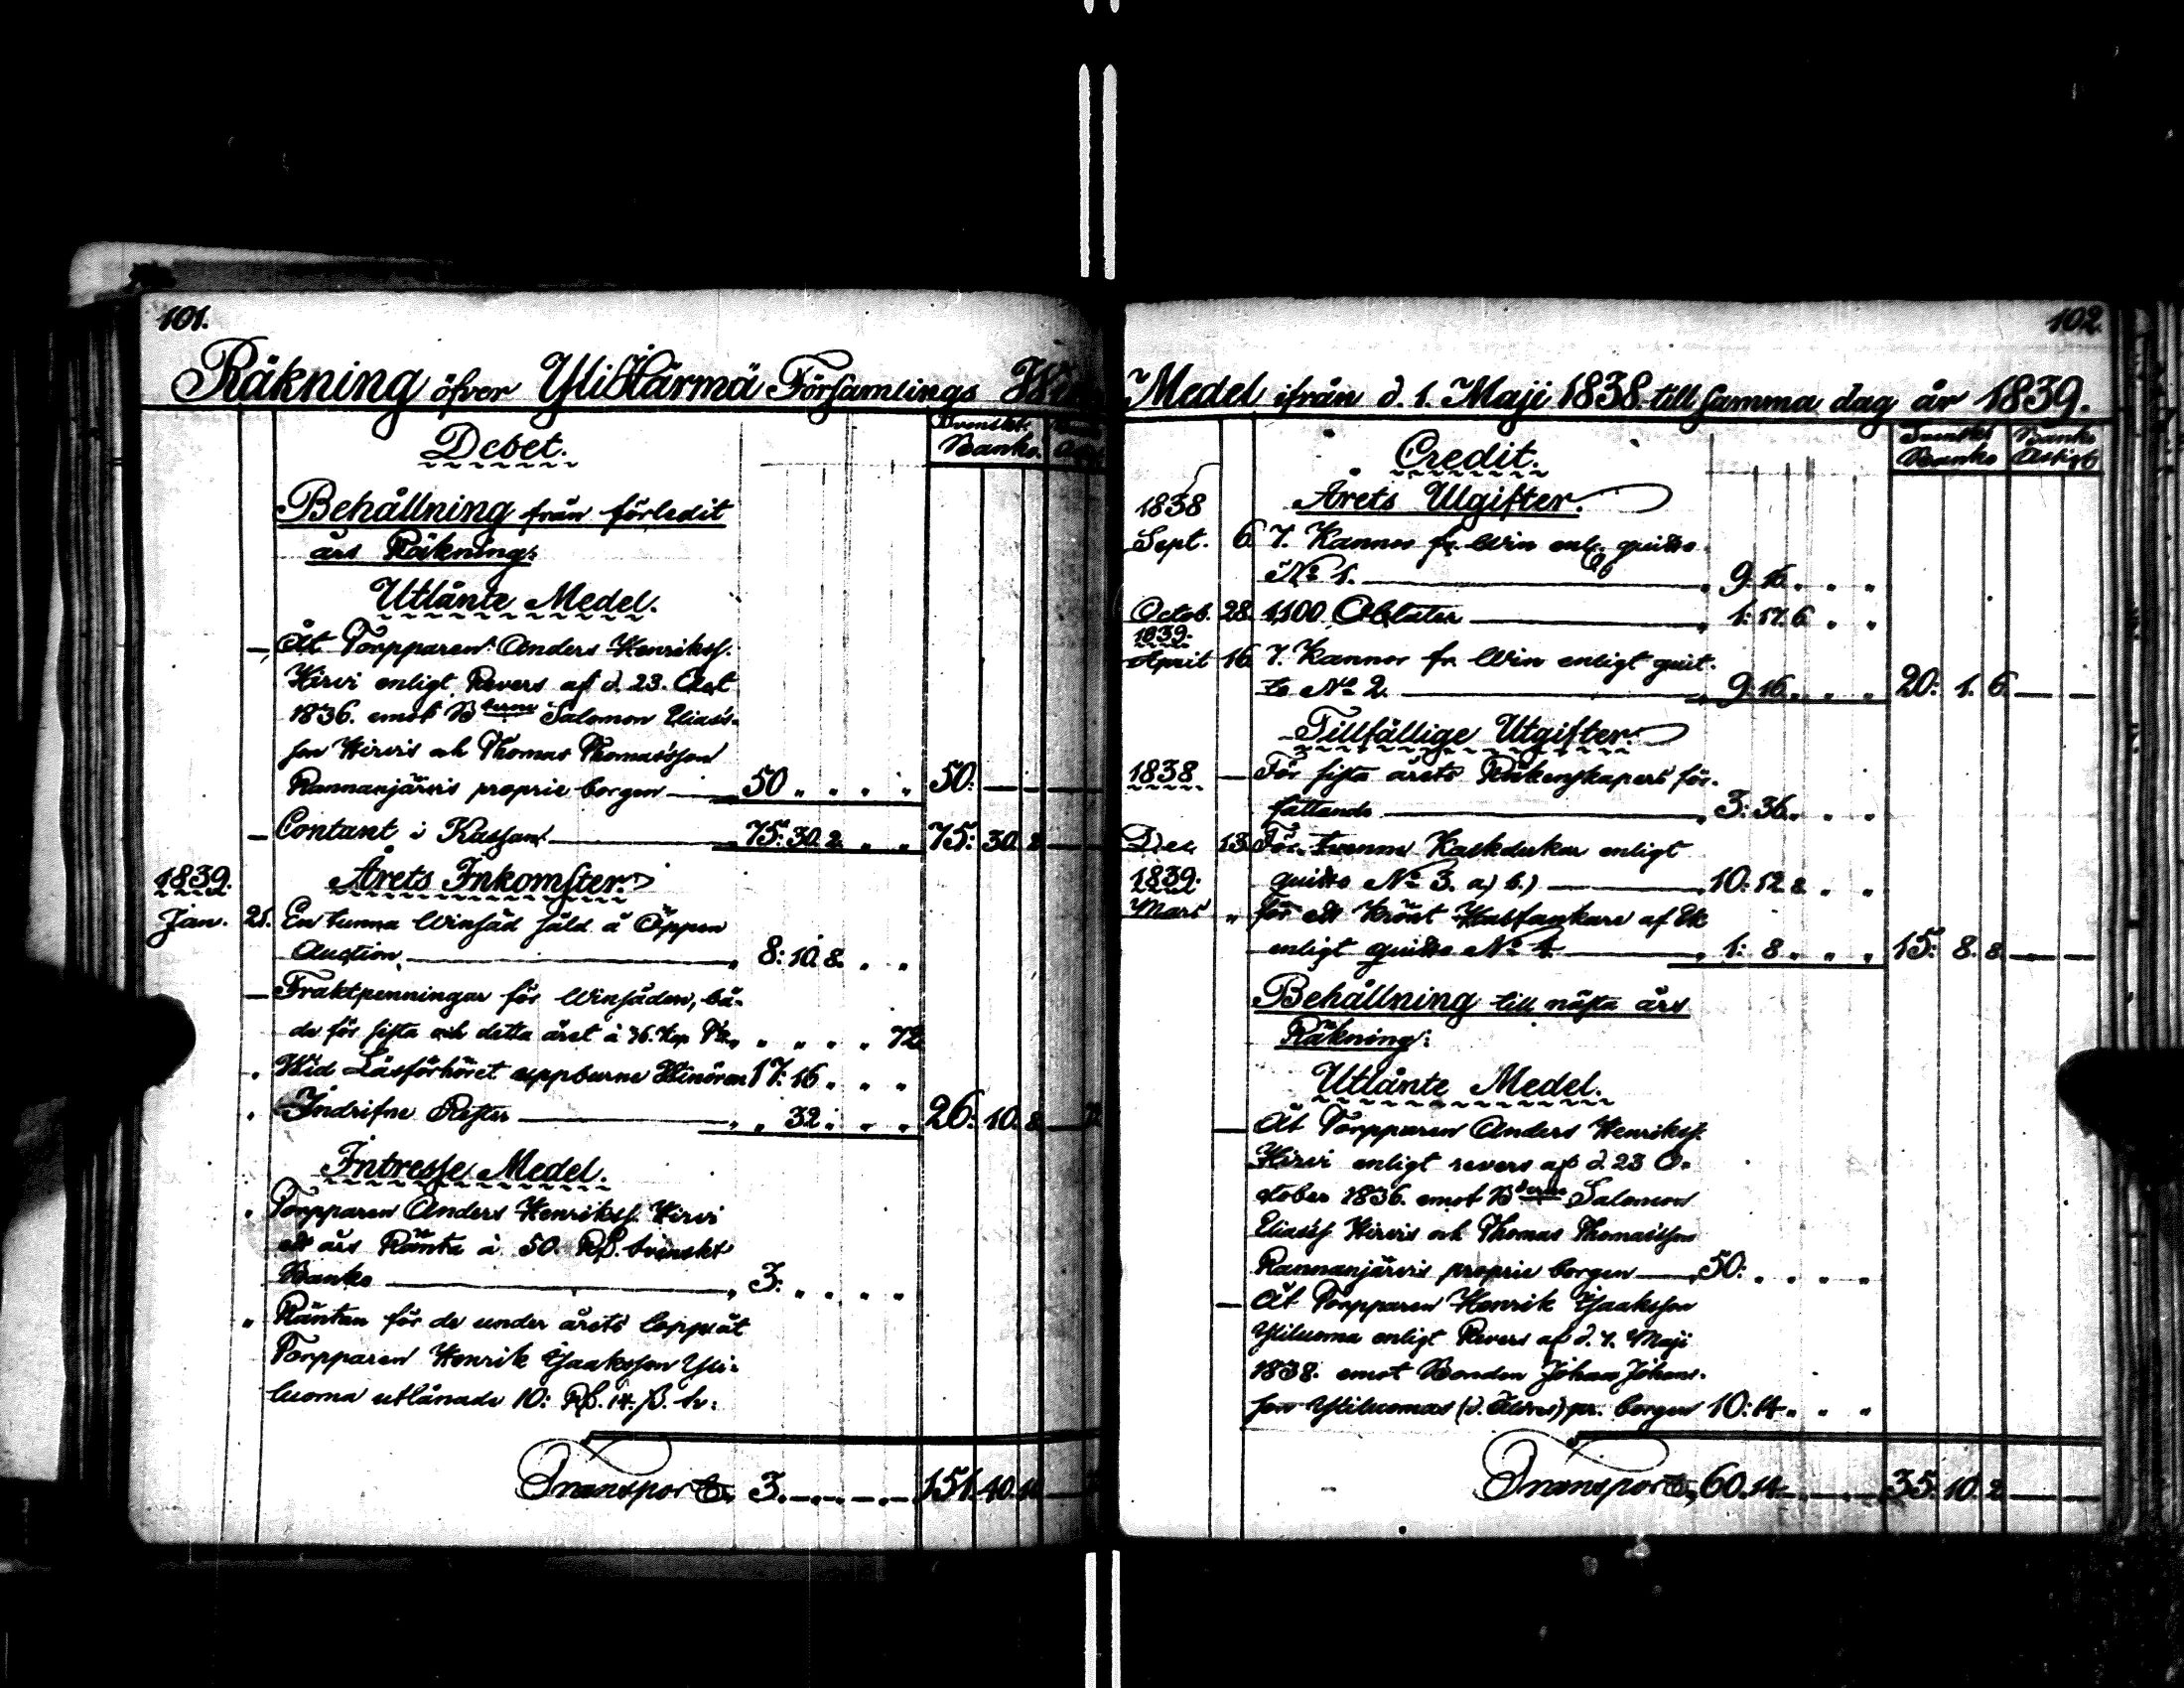 101.
Räkning öfver YliHärmä Församlings
Debet.
Svenskt Banko.
Behållning från förledit
års Räkning:
Utlånte Medel.
— Åt Torpparen Anders Henrikss.
Hirvi enligt Revers af d. 23. Oct
1836. emot Bderne Salomon Elias's-
son Hirvis och Thomas Thomas'sson
Rannanjärvis proprie borgen — 50 „ „ „ „ 50: — —
— Contant i Kassan — 75: 30. 2. „ „ 75: 30. 2 —
1839. Årets Inkomster.
Jan. 21. En tunna Winsäd såld å Öppen
Auction — 8: 10. 8. „ „
— Fraktpenningar för Winsäden, bå-
de för sista och detta året à 36. Kop. „ „ „ „ 72
„ Wid Läsförhöret uppburne Winören 17: 16 „ „ „
„ Indrifne Rester — „ 32: „ „ „ 26: 10. 8 —
Intresse Medel.
„ Torpparen Anders Henrikss. Hirvi
ett års Ränta à 50. Rß. Svenskt
Banko — 3: „ „ „ „
„ Räntan för de under årets lopp åt
Torpparen Henrik Jaaksson Yli-
luoma utlånade 10: Rß. 14. ß. Sv:
Transport 3. — — — — 151. 40. —
102.
Medel ifrån d. 1. Maji 1838. till samma dag år 1839.
Credit.
Svenskt Banko
Banko Assign.
1838 Årets Utgifter.
Sept. 6 7. Kannor fr. Win enl. quitto
No 1. — 9: 16 „ „ „
Octob. 28. 1,100 Oblater — 1: 17. 6 „ „
1839.
April 16 7. Kannor fr. Win enligt quit-
to No 2. — 9: 16 „ „ „ 20: 1. 6. — —
Tillfällige Utgifter.
1838 — För sista årets Räkenskapers för-
fattande — 3: 36. „ „ „
Dec. 13. För tvenne Kalkdukar enligt
1839. quitto No 3. a) b.) — 10: 12. 8. „ „
Mars „ för ett Krönt af Ek
enligt quitto No 4. — 1: 8 „ „ „ 15: 8. 8 — —
Behållning till nästa års
Räkning:
Utlånte Medel.
— Åt Torpparen Anders Henrikss.
Hirvi enligt revers af d. 23 O-
ctober 1836. emot Bderne Salomon
Elias's Hirvis och Thomas Thomas'sson
Rannanjärvis proprie borgen — 50: „ „ „ „
— Åt Torpparen Henrik Jaaksson
Yliluoma enligt Revers af d. 1. Maji
1838. emot Bonden Johan Johans-
son Yliluomas (d. Äldres) pr. borgen 10: 14 „ „ „
Transport 60. 14 — — — 35: 10. 2 — —